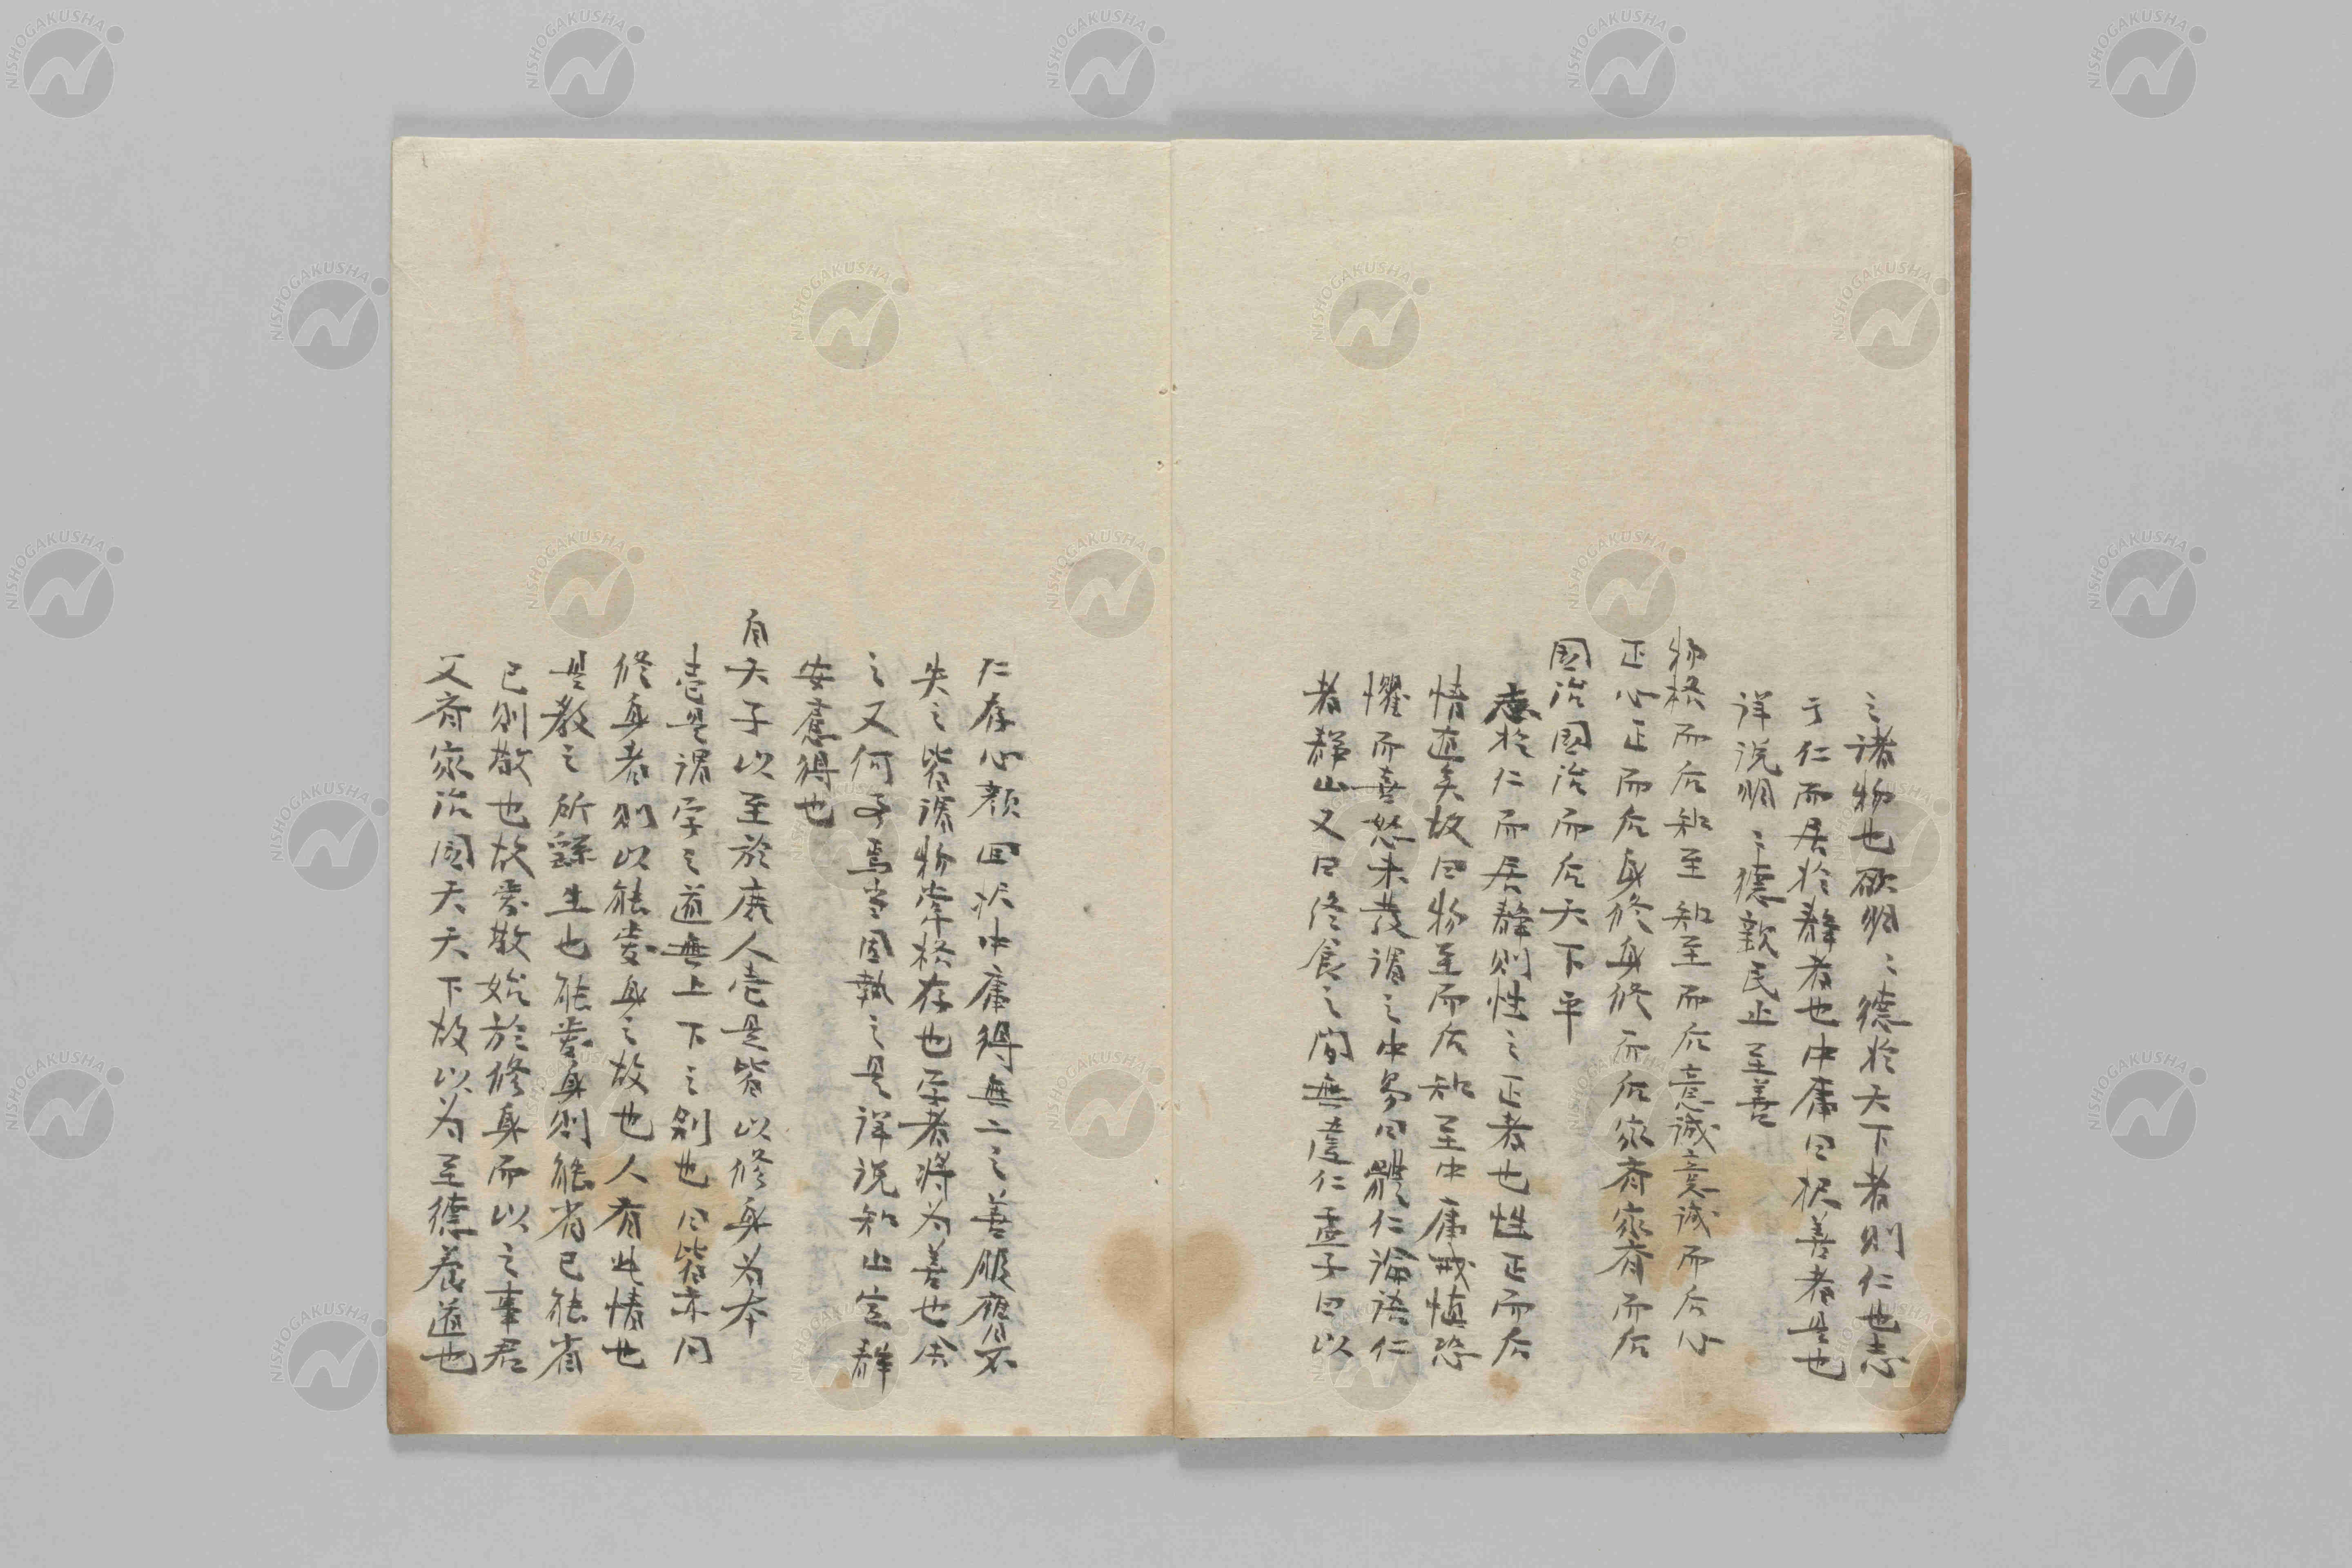 之諸物也欲明〻德於天下者則仁也志
于仁而居於静者也中庸曰択善者是也
詳説明〻德親民止至善
物格而后知至知至而后意誠意誠而后心
正心正而后身修身修而后家斉家斉而后
国治国治而后天下平
志於仁而居静則性之正者也性正而后
情道矣故曰物至而后知至中庸戒慎恐
懼而喜怒未発謂之中易曰體仁論語仁
者静山又曰終食之間無違仁孟子曰以
仁存心顔回択中庸得無一之善服膺不
失之皆添物牽格存也学者将为善也舍
之又何予焉当固執之是詳説知止定静
安慮得也
自天子以至於庶人壱是皆以修身为本
壱是謂学之道無上下之別也曰皆亦同
修身者則以能愛身之故也人有此情也
是教之所繇生也能愛身則能省己能省
己則敬也故愛敬始於修身而以之事君
又斉家治国天下故以为至德養道也
NISHOGAKUSHA